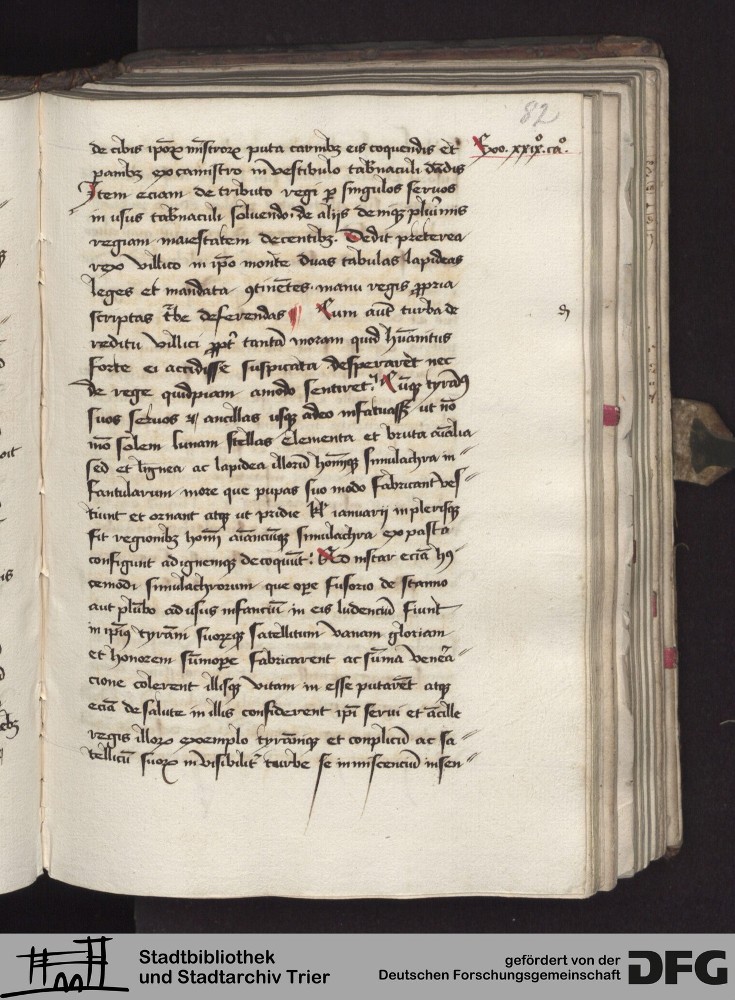 82
de cibis ipoꝝ mīstroꝝ puta carnibꝫ eis coquendis et
Exo. xxix.º ca.º
panibꝫ ex canistro in vestibulo tab͛naculi dādis
Item eciam de tributo regi ꝑ singulos servos
in usus tab͛naculi solvendo · de alijs deniqꝫ plurimis
regiam maiestatem decentibꝫ. Dedit preterea
rex villico in ipo monte duas tabulas lapideas
leges et mandata ꝯtinētes · manu regis ꝓpria
scriptas t͛be deferendas Cum autē turba de
reditu villici ꝓpt͛ tantā moram quid hūanitus
forte ei accidisse suspicata desperaret nec
de rege quidpiam amodo sentiret. Cūqꝫ tyrāꝯ
suos servos ⁊ ancillas usqꝫ adeo infatuass͛ ut nō
mō solem lunam stellas elementa et bruta aīalia
sed et lignea ac lapidea illorū hoīmqꝫ simulachra in
fantularum more que pupas suo modo fabricant ves
tiunt et ornant atqꝫ ut pridie kl͛ ianuarij in plerisqꝫ
fit regionibꝫ hoīm aīanciūqꝫ simulachra ex pasta
configunt ad ignemqꝫ decoquūt. Ad instar eciā hꝯ
cemodi simulachrorum que ope fusorio de stanno
aut plūbo ad usus infanciū in eis ludenciū fiunt
in ipiꝯ tyrāni suorꝫqꝫ satellitum vanam gloriam
et honorem sūmope fabricarent ac sūma venera
cione colerent illisqꝫ vitam in esse putarēt atqꝫ
eciā de salute in illis confiderent ipi servi et ācille
regis illoꝝ exemplo tyrāniqꝫ et conplicū ac sa
tellicū suoꝝ invisibilit͛ turbe se inmiscenciū insen
Stadtbibliothek
und Stadtarchiv Trier
gefördert von der
Deutschen Forschungsgemeinschaft
DFG